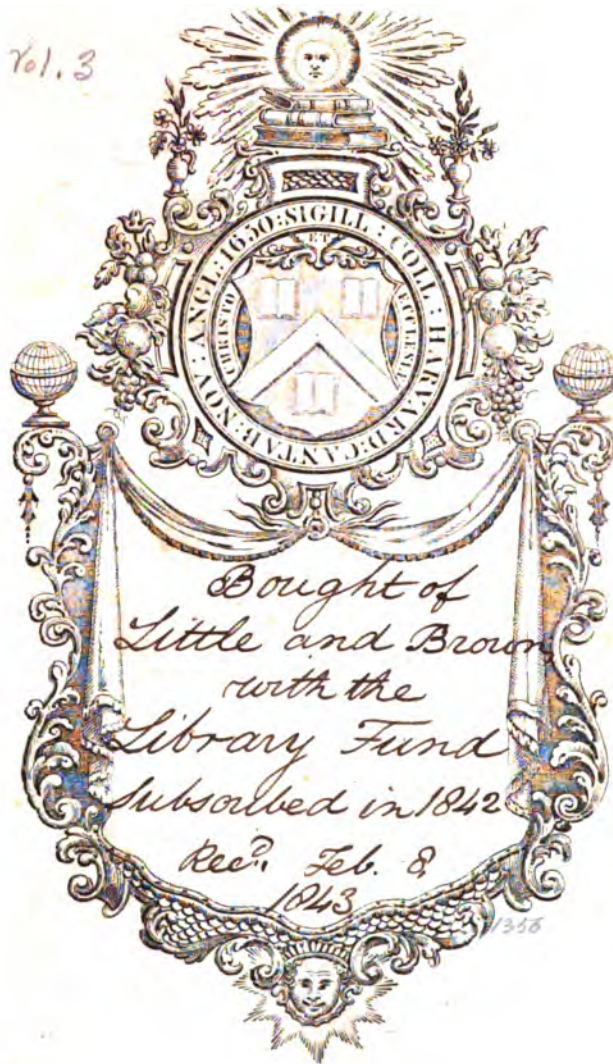 Vol. 3
SIGILL : COLL : HARVARD : CANTAB : NOV : ANGL : 1650 :
CHRISTO
ET
ECCLESIÆ
Bought of
Little and Brown,
with the
Library Fund
subscribed in 1842
Recd. Feb. 8,
1843
1356